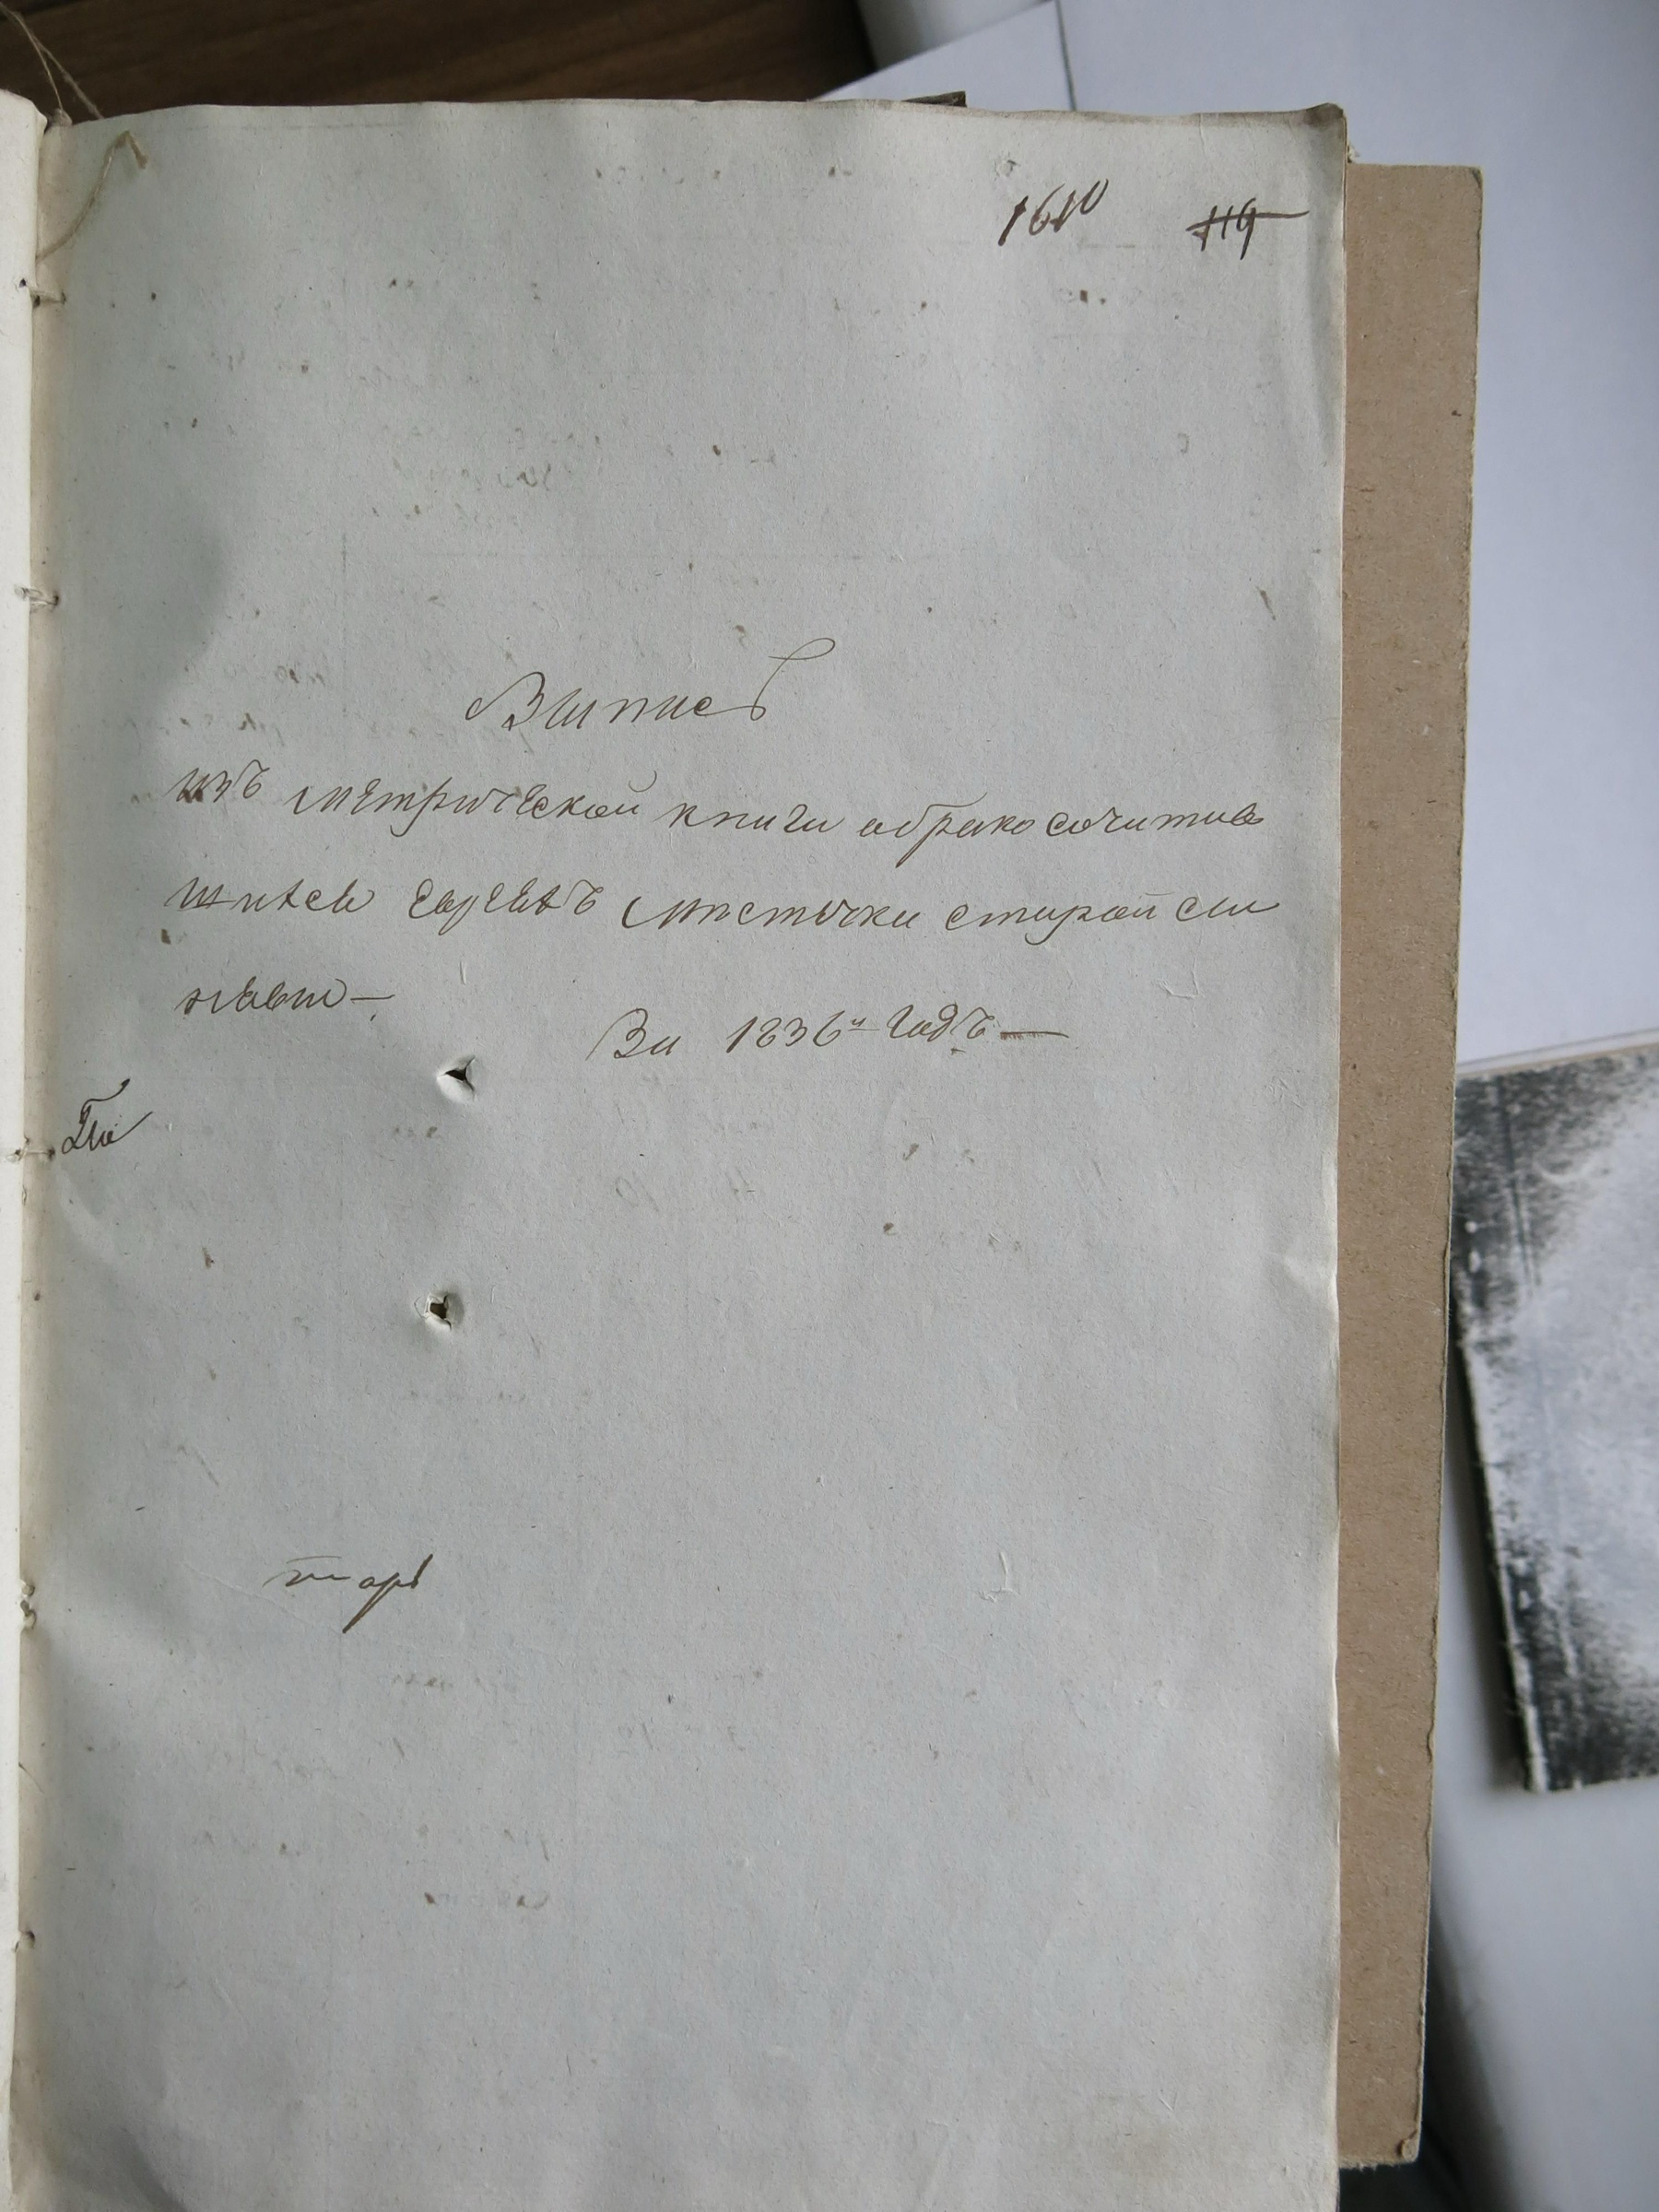 119
Выпись
изъ метрической книги обракосочитав
шихся евреевъ мѣстечки старой си
нявы —
За 1836й годъ —
тарь